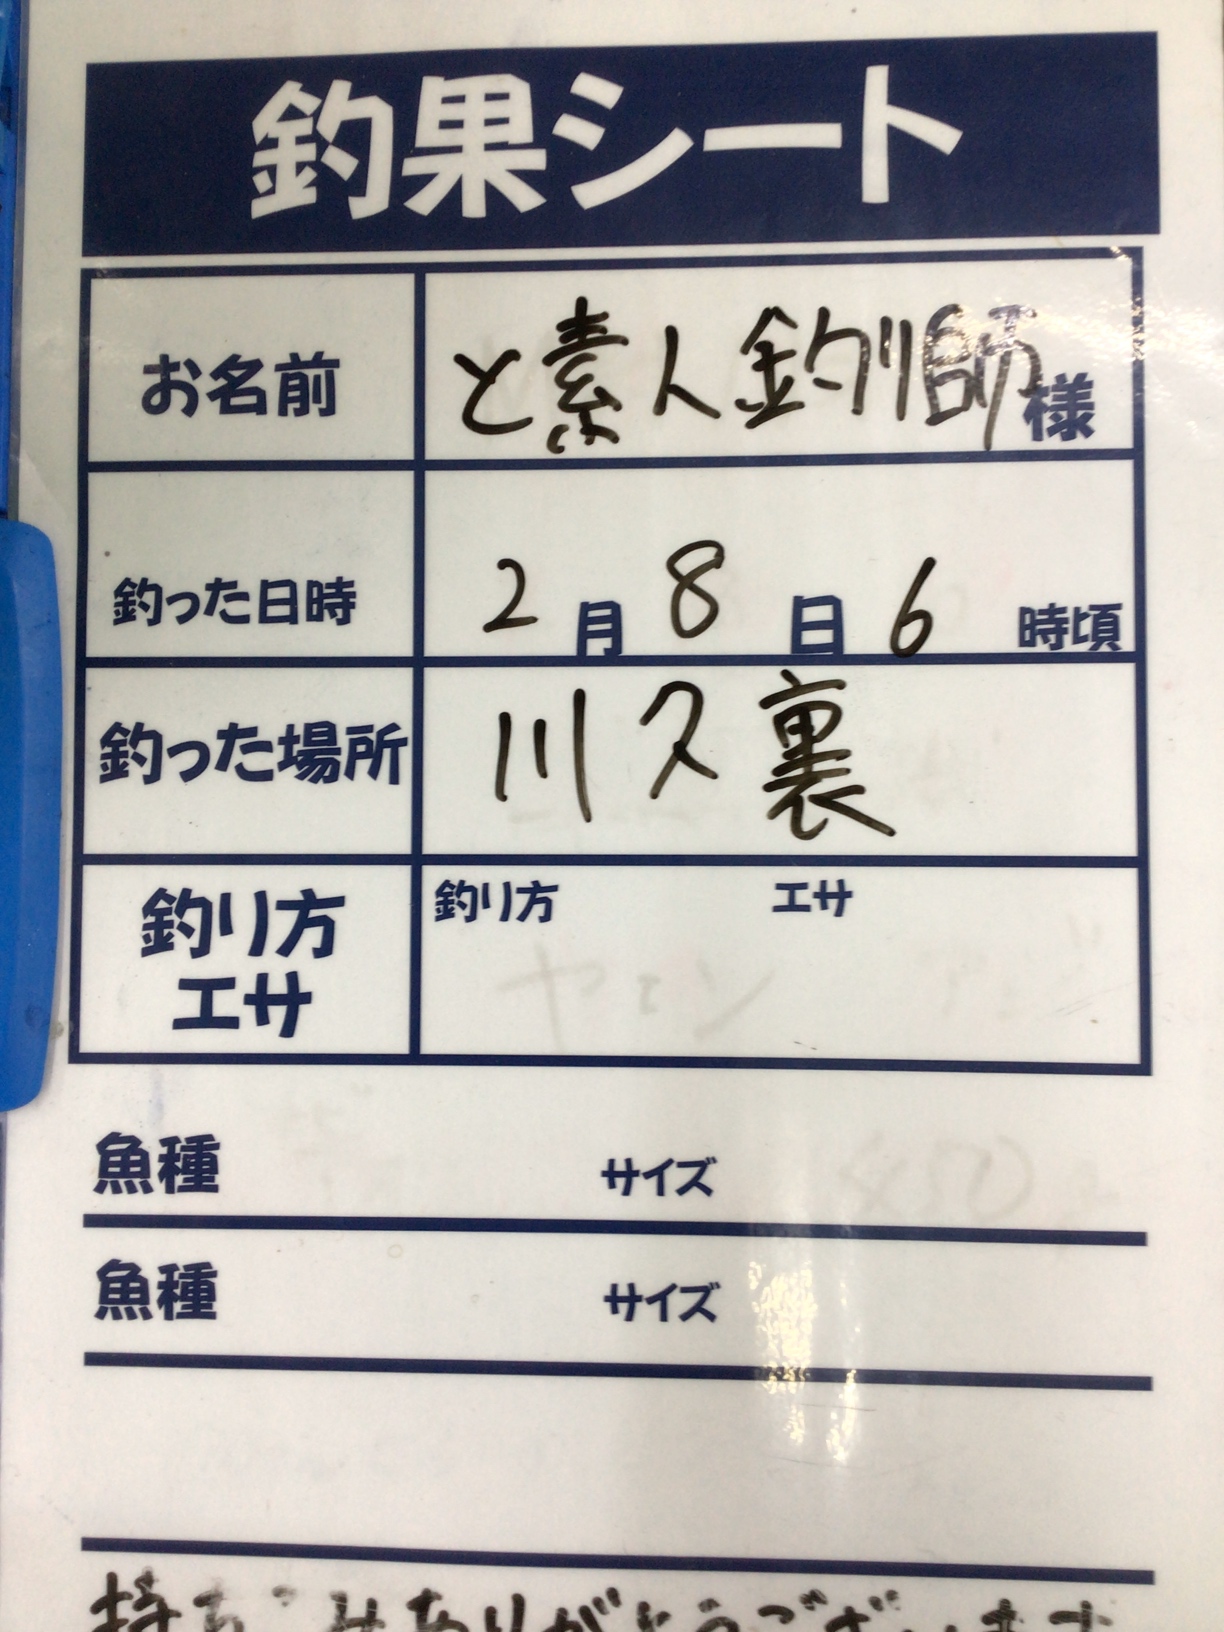 釣果シート
お名前 と素人釣り師様
釣った日時 2月8日6時頃
釣った場所 川久裏
釣り方 エサ 釣り方 エサ
魚種 サイズ
魚種 サイズ
持ちこみありがとうございます